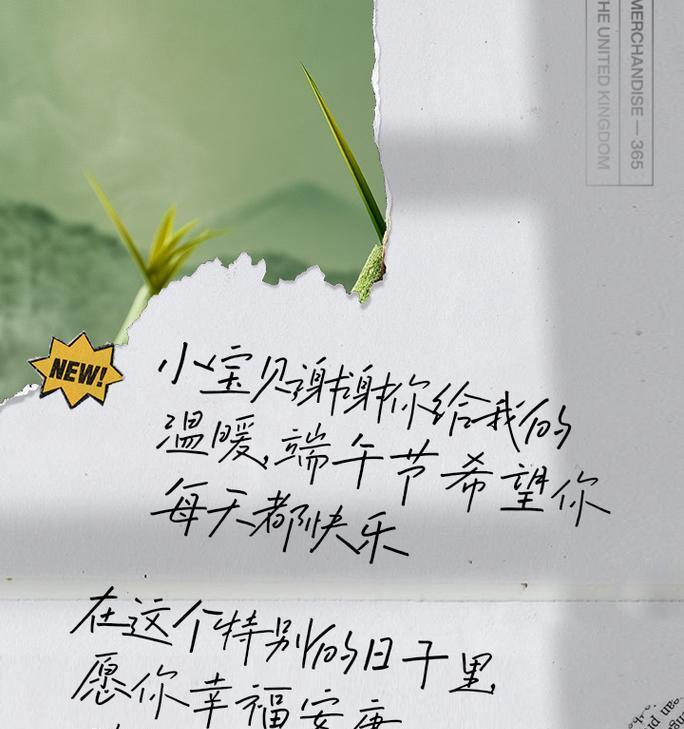 MERCHANDISE — 365
HE UNITED KINGDOM
NEW!
小宝贝谢谢你给我的
温暖,端午节希望你
每天都快乐
在这个特别的日子里,
愿你幸福安康